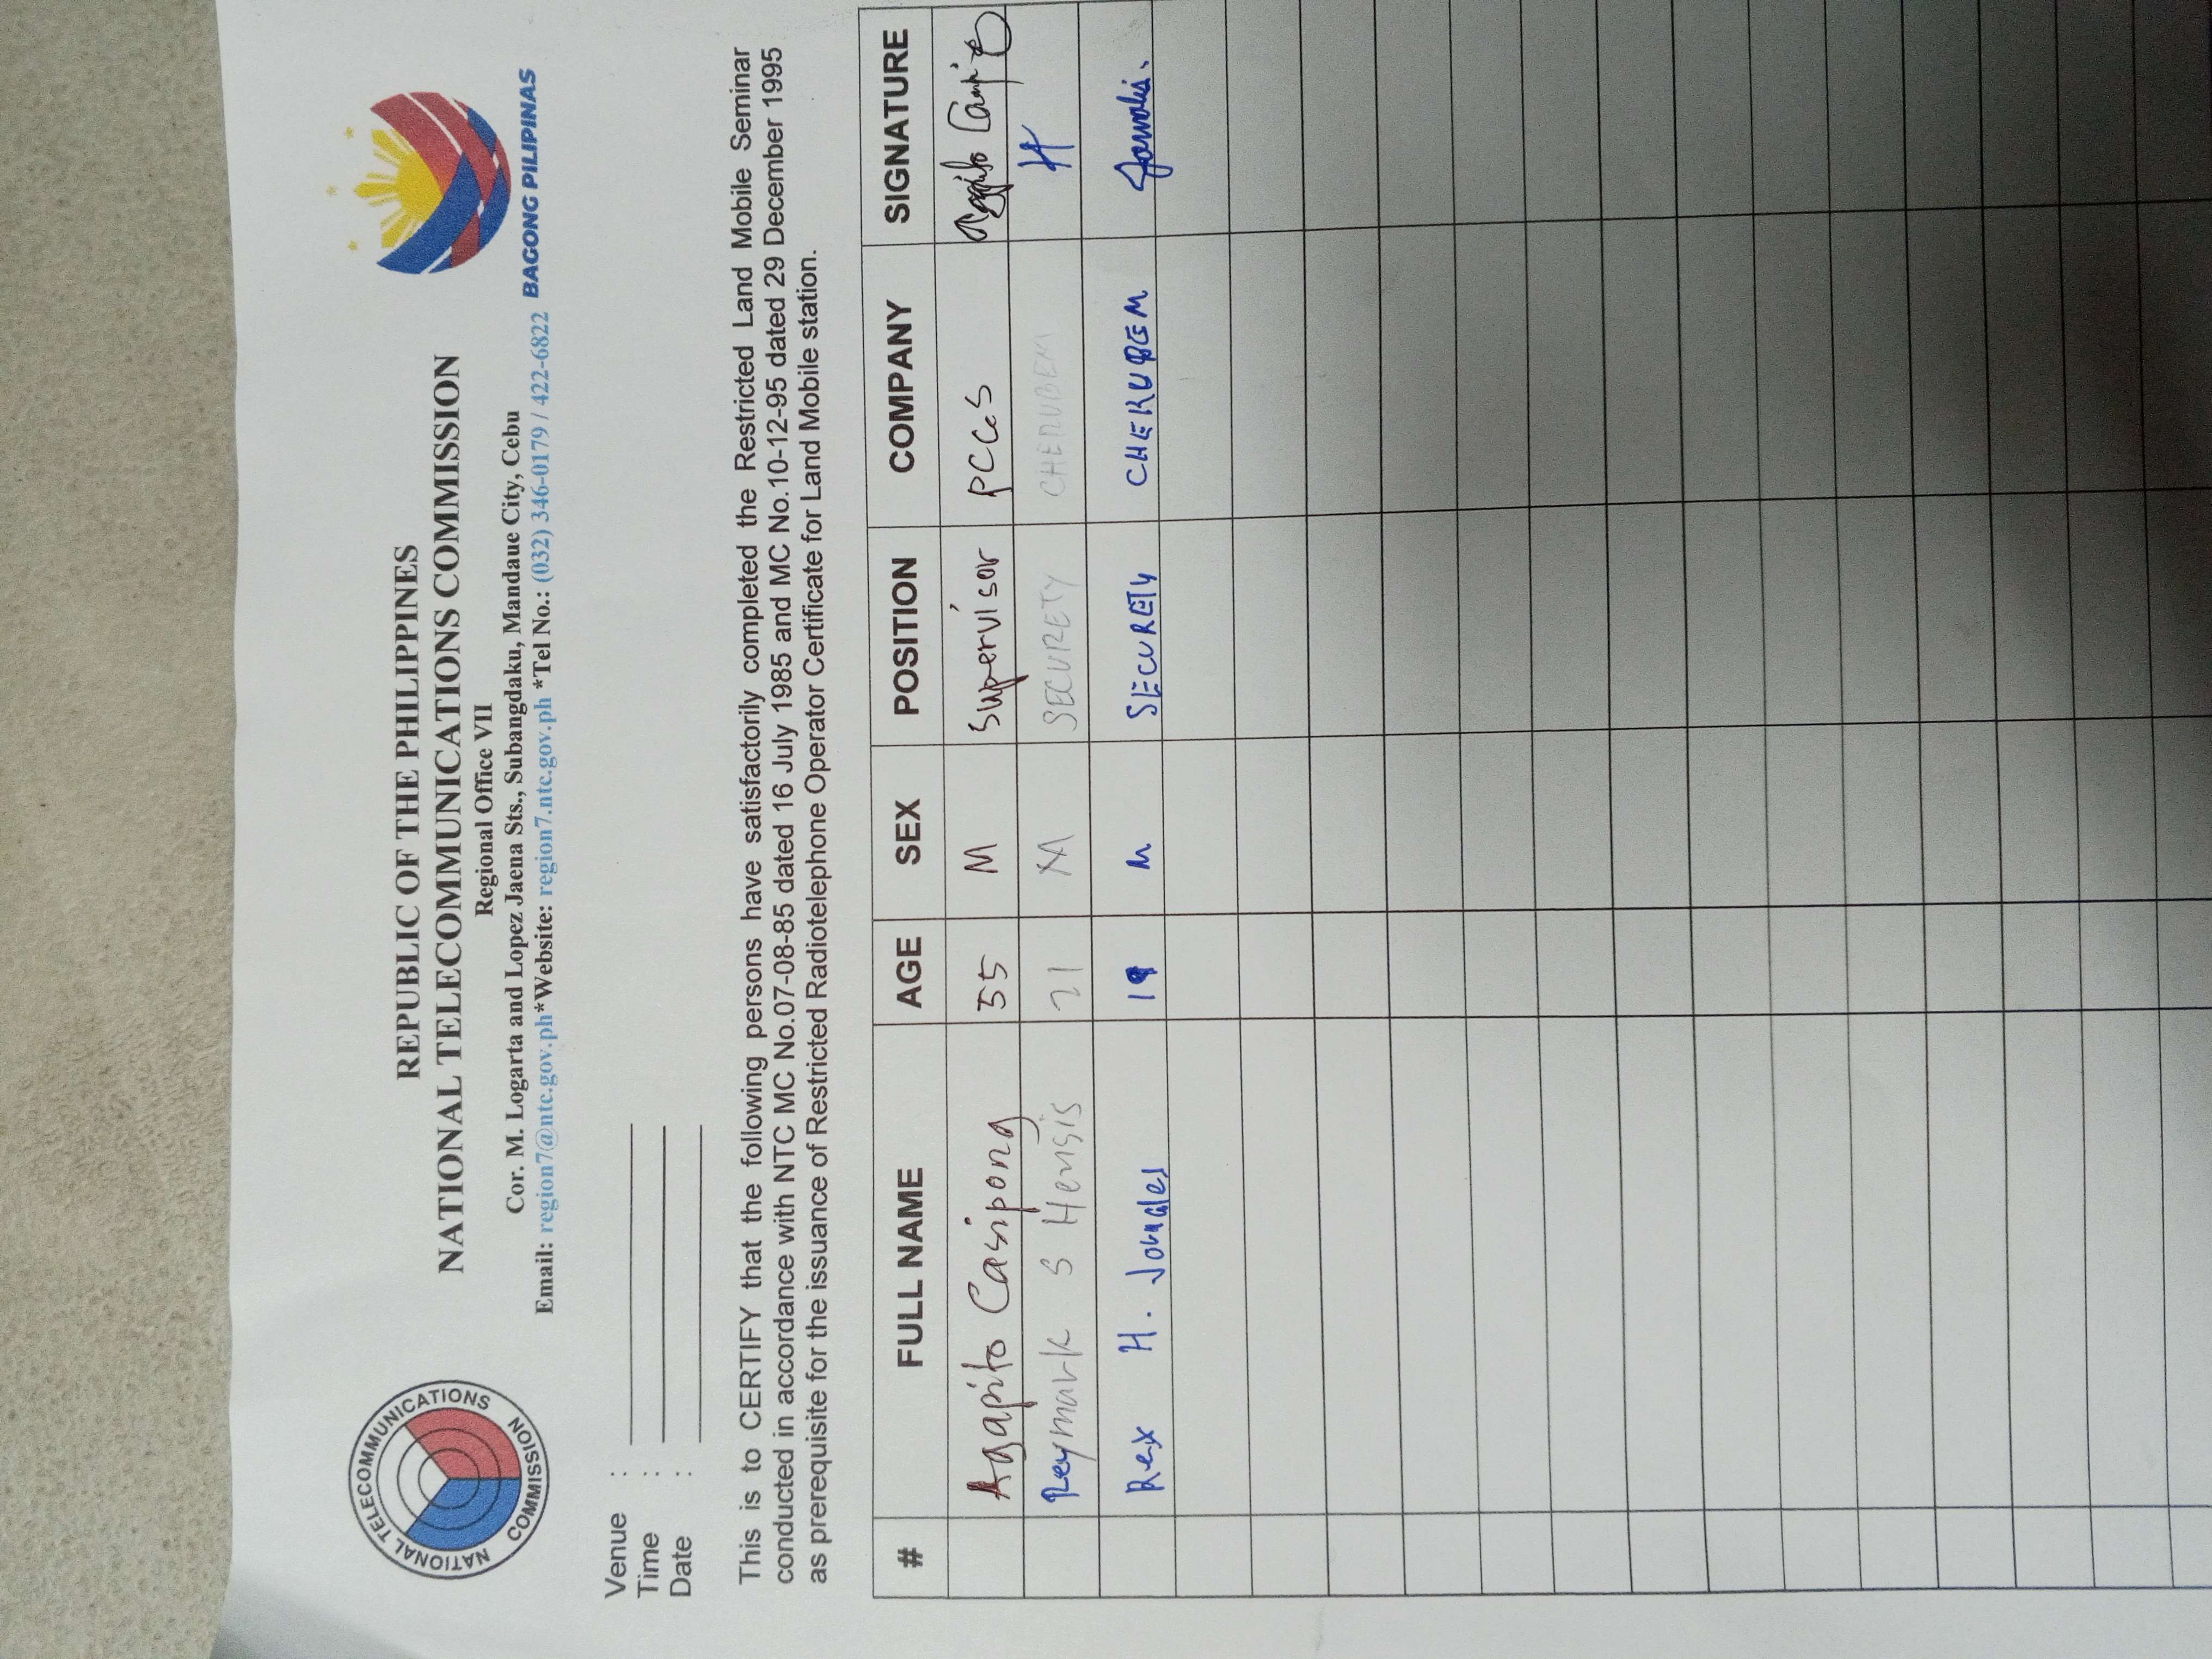 NATIONAL TELECOMMUNICATIONS COMMISSION
REPUBLIC OF THE PHILIPPINES
NATIONAL TELECOMMUNICATIONS COMMISSION
Regional Office VII
Cor. M. Logarta and Lopez Jaena Sts., Subangdaku, Mandaue City, Cebu
Email: region7@ntc.gov.ph*Website: region7.ntc.gov.ph *Tel No.: (032) 346-0179 / 422-6822
BAGONG PILIPINAS
Venue :
Time :
Date :
This is to CERTIFY that the following persons have satisfactorily completed the Restricted Land Mobile Seminar
conducted in accordance with NTC MC No.07-08-85 dated 16 July 1985 and MC No.10-12-95 dated 29 December 1995
as prerequisite for the issuance of Restricted Radiotelephone Operator Certificate for Land Mobile station.
# FULL NAME AGE SEX POSITION COMPANY SIGNATURE
Agapito Casipong 55 M Supervisor PCCS
Reymark S Hensis 21 M SECURETY CHERUBEM
Rex H. Jonales 19 M SECURETY CHERUBEM